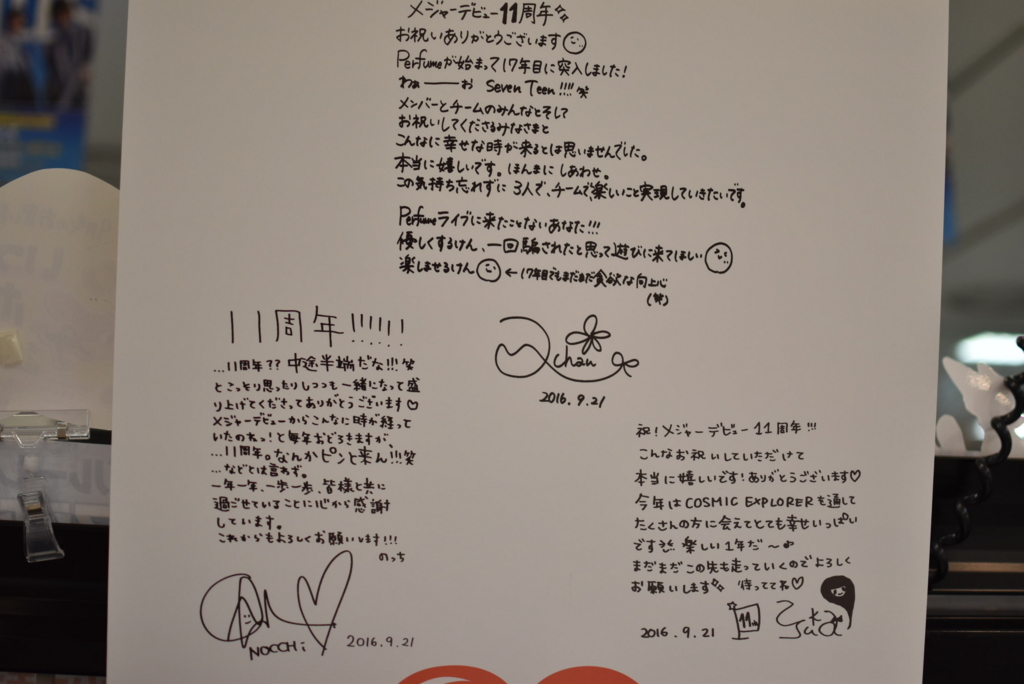 メジャーデビュー11周年
お祝いありがとうございます
Perfumeが始まって17年目に突入しました!
わぁーーお Seven Teen!!!! 笑
メンバーとチームのみんなとそして
お祝いしてくださるみなさまと
こんなに幸せな時が来るとは思いませんでした。
本当に嬉しいです。ほんまに しあわせ。
この気持ち忘れずに 3人で、チームで、楽しいこと実現していきたいです。
Perfumeライブに来たことないあなた!!!
優しくするけん、一回騙されたと思って遊びに来てほしい
楽しませるけん ←17年目でもまだまだ貪欲な向上心
(笑)
11周年!!!!!!
...11周年?? 中途半端だな!!! 笑
とこっそり思ったりしつつも一緒になって盛
り上げてくださってありがとうございます♡
メジャーデビューからこんなに時が経って
いたのねっ!と毎年おどろきますが、
...11周年。なんかピンと来ん!!! 笑
...などとは言わず。
一年一年、一歩一歩、皆様と共に
過ごせていることに心から感謝
しています。
これからもよろしくお願いします!!!
のっち
NOCCHi 2016.9.21
a~chan
2016.9.21
祝!メジャーデビュー11周年!!!
こんなお祝いしていただけて
本当に嬉しいです!ありがとうございます♡
今年はCOSMIC EXPLORERを通して
たくさんの方に会えてとても幸せいっぱい
です 楽しい1年だ〜♪
まだまだこの先も走っていくのでよろしく
お願いします 待っててね♡
2016.9.21 11th